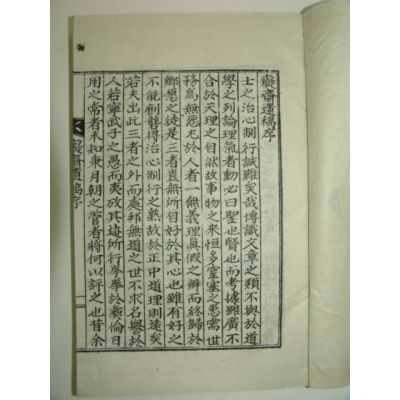 癡齋遺稿序
士之治心制行誠難矣哉博識文章之類不與於道
學之列論理氣者動必曰聖也賢也而考據雖廣不
合於天理之自然故事物之來恒多窒塞之患需世
務爲無惡尤於人者一無義理眞假之辨而終歸於
鄕愿之徒是三者豈無所目好於其心也雖有好之
不能剛難得治心制行之義故於正中道理則遠矣
若夫出此三者之外而處邦無道之世不求名譽於
人若寧武子之愚而夷攷其迹所行拳拳於彛倫日
用之常者未知秉月朝之管者將何以評之也昔余
癡齋遺稿序 一